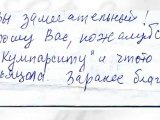 вы замечательный!
рошу Вас, пожалуйс
"Кумпарситу" и что-то
Заранее благ